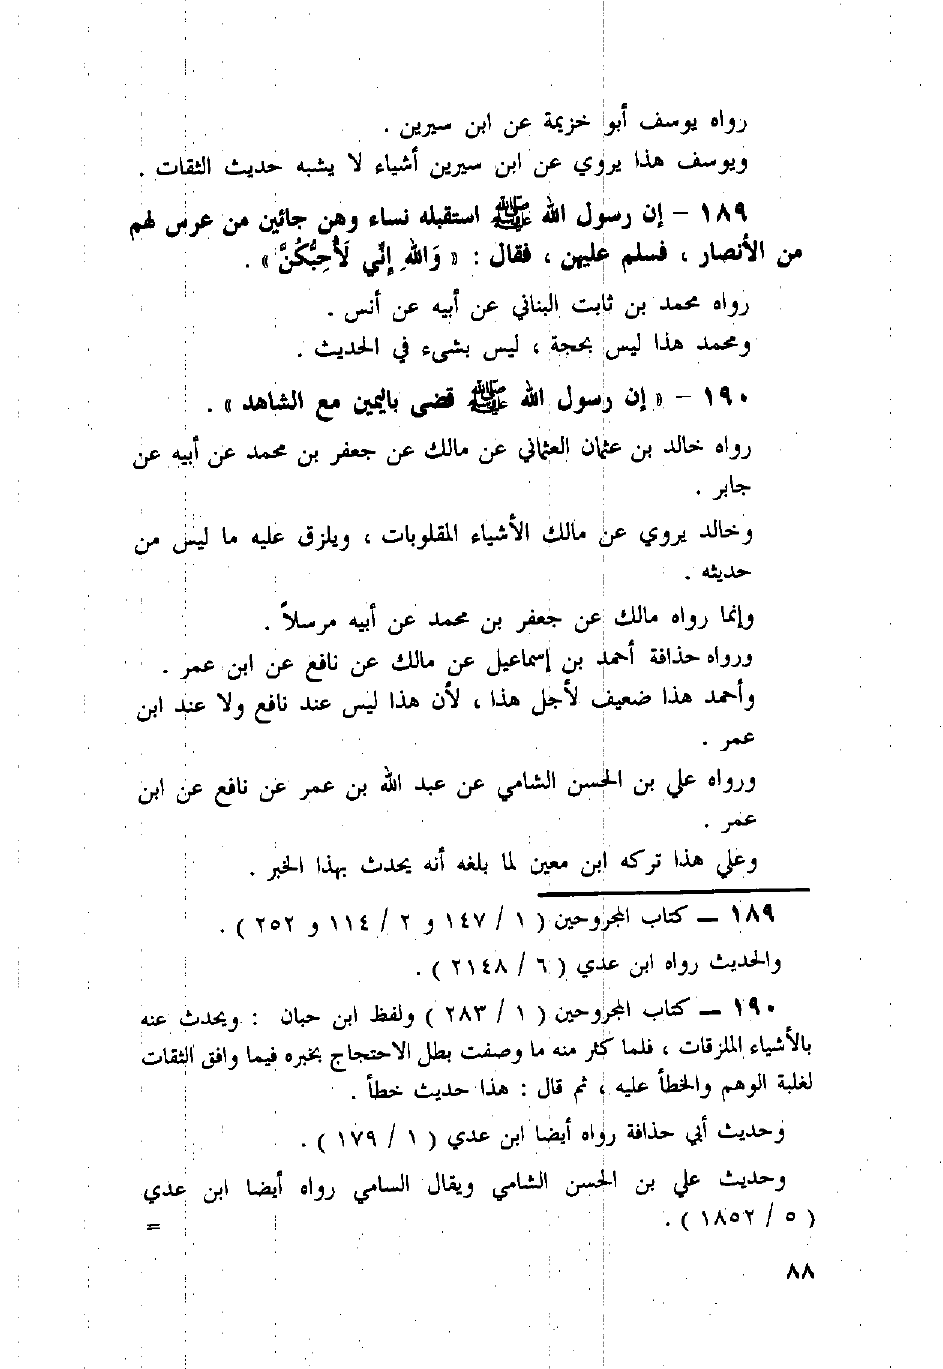 رواه يوسف أبو خزيمة عن ابن سيرين .
ويوسف هذا يروي عن ابن سيرين أشياء لا يشبه حديث الثقات .
١٨٩ - إن رسول الله ﷺ استقبله نساء وهن جائين من عرس لهم
من الأنصار ، فسلم عليهن ، فقال : « وَاللهِ إِنِّي لَأُحِبُّكُنَّ » .
رواه محمد بن ثابت البناني عن أبيه عن أنس .
ومحمد هذا ليس بحجة ، ليس بشىء في الحديث .
١٩٠ - « إن رسول الله ﷺ قضى باليمين مع الشاهد » .
رواه خالد بن عثمان العثماني عن مالك عن جعفر بن محمد عن أبيه عن
جابر .
وخالد يروي عن مالك الأشياء المقلوبات ، ويلزق عليه ما ليس من
حديثه .
وإنما رواه مالك عن جعفر بن محمد عن أبيه مرسلاً .
ورواه حذافة أحمد بن إسماعيل عن مالك عن نافع عن ابن عمر .
وأحمد هذا ضعيف لأجل هذا ، لأن هذا ليس عند نافع ولا عند ابن
عمر .
ورواه علي بن الحسن الشامي عن عبد الله بن عمر عن نافع عن ابن
عمر .
وعلي هذا تركه ابن معين لما بلغه أنه يحدث بهذا الخبر .
١٨٩ ــ كتاب المجروحين ( ١ / ١٤٧ و ٢ / ١١٤ و ٢٥٢ ) .
والحديث رواه ابن عدي ( ٦ / ٢١٤٨ ) .
١٩٠ ــ كتاب المجروحين ( ١ / ٢٨٣ ) ولفظ ابن حبان : ويحدث عنه
بالأشياء الملزقات ، فلما كثر منه ما وصفت بطل الاحتجاج بخبره فيما وافق الثقات
لغلبة الوهم والخطأ عليه ، ثم قال : هذا حديث خطأ .
وحديث أبي حذافة رواه أيضا ابن عدي ( ١ / ١٧٩ ) .
وحديث علي بن الحسن الشامي ويقال السامي رواه أيضا ابن عدي
( ٥ / ١٨٥٢ ) .
=
٨٨